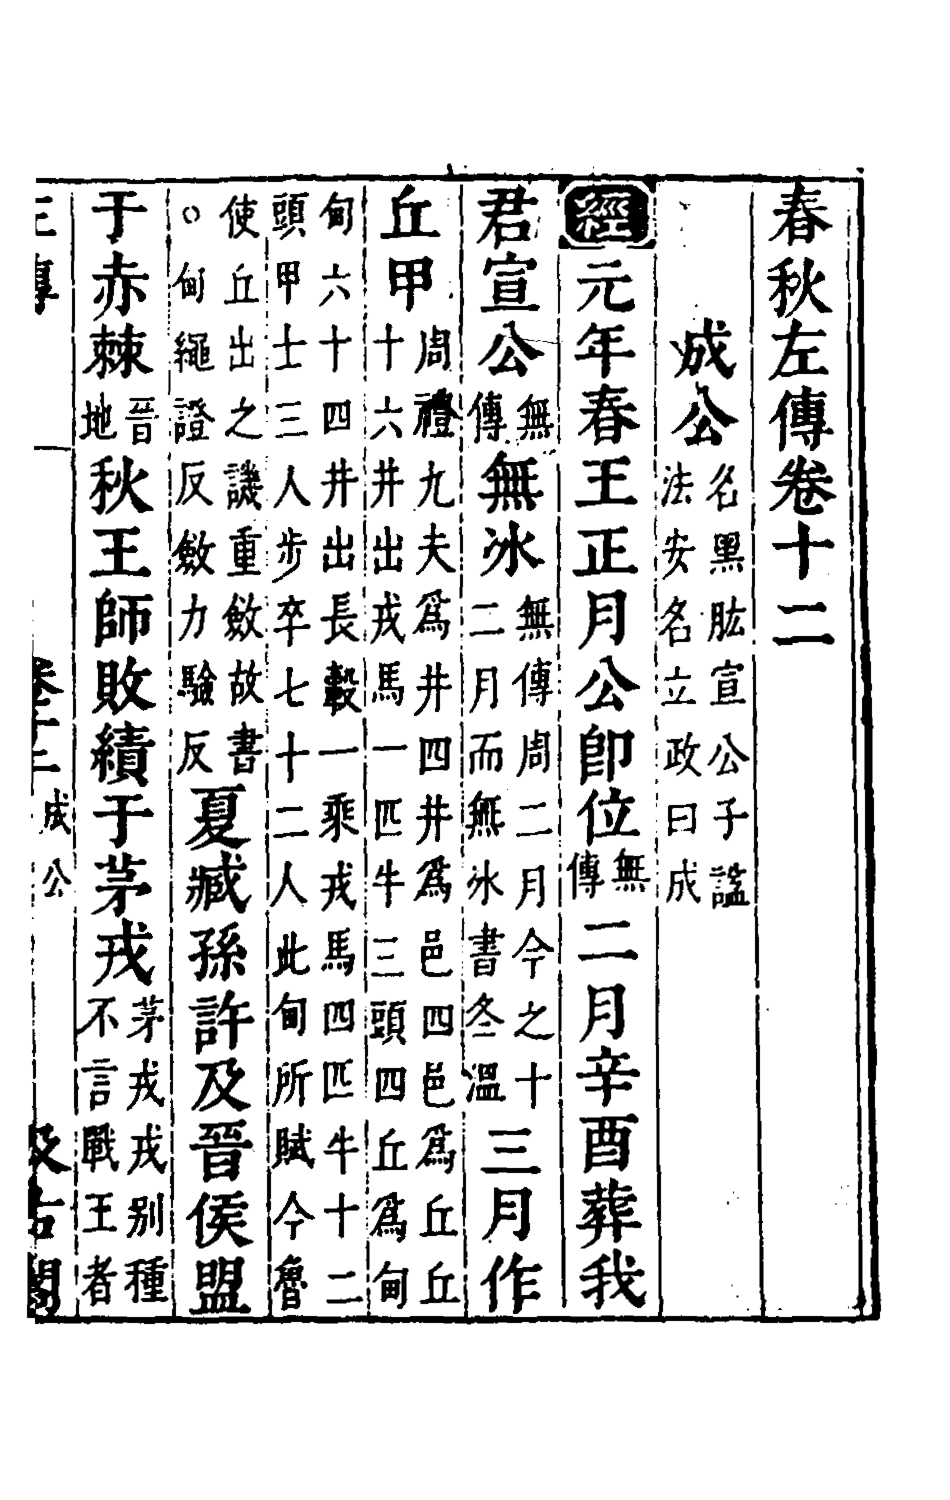 春秋左傳卷十二
成公名黑肱宣公子謚法安名立政曰成
經元年春王正月公卽位無傳二月辛酉葬我
君宣公無傳無冰無傳周二月今之十二月而無冰書冬溫三月作
丘甲周禮九夫爲井四井爲邑四邑爲丘丘十六井出戎馬一匹牛三頭四丘爲甸
甸六十四井出長轂一乘戎馬四匹牛十二頭甲士三人步卒七十二人此甸所賦今魯
使丘出之譏重斂故書○甸繩證反斂力驗反夏臧孫許及晉侯盟
于赤棘晉地秋王師敗績于茅戎茅戎戎别種不言戰王者
卷十二 成公 汲古閣